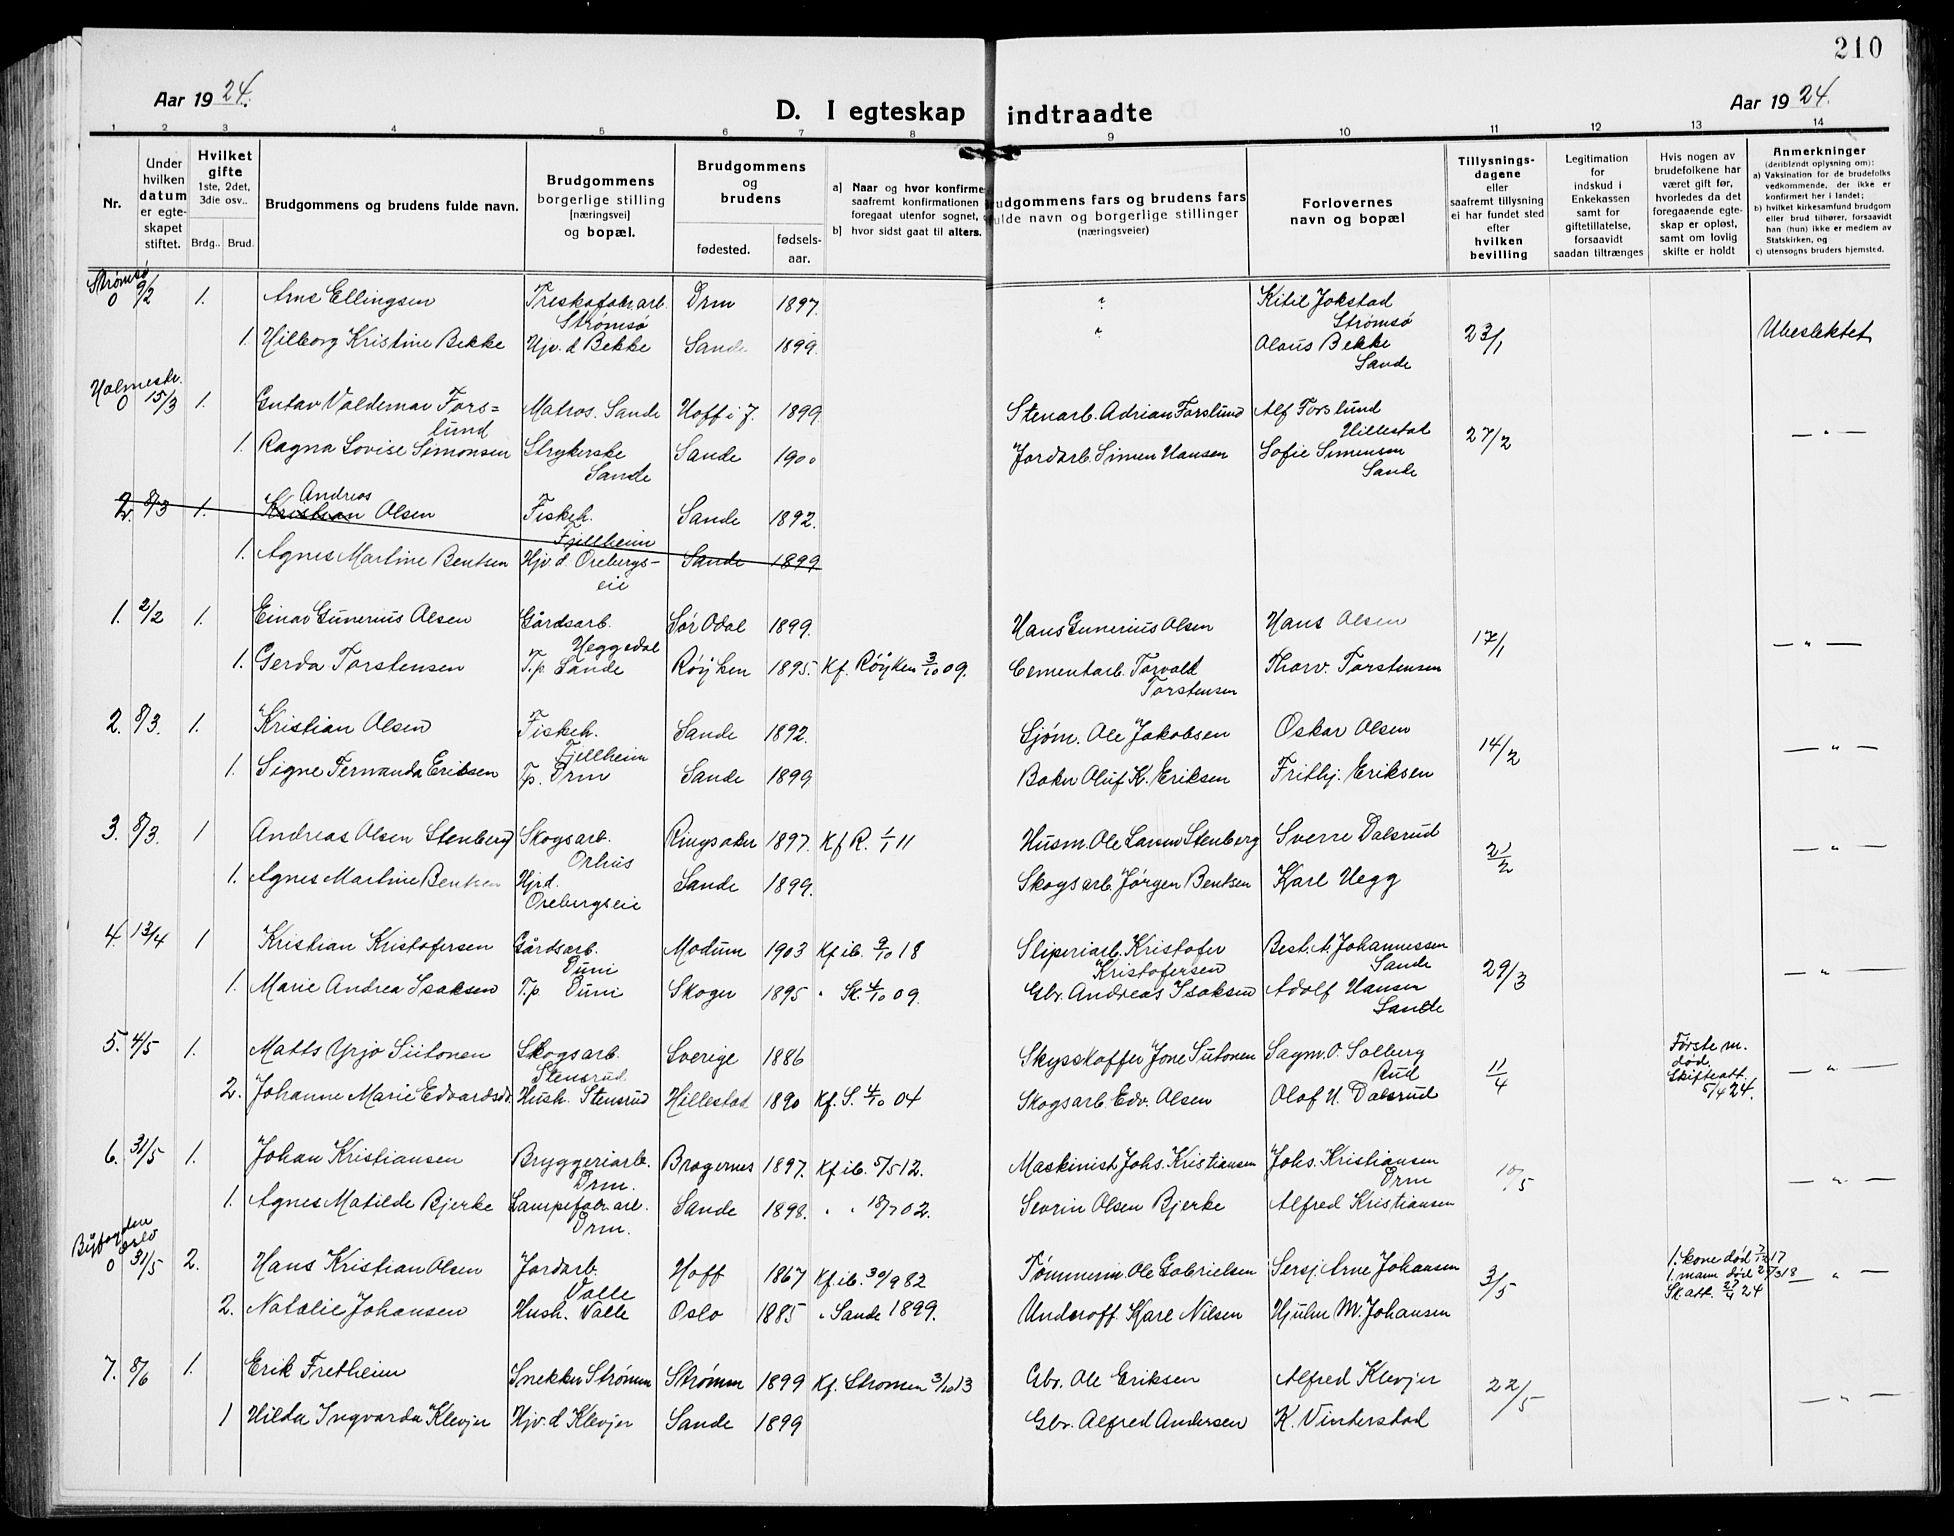 210
Aar 1924.
Aar 1924.
D. I egteskap indtraadte
1 2 3 4 5 6 7 8 9 10 11 12 13 14
Nr.
Under hvilken datum er egte-skapet stiftet.
Hvilket gifte 1ste, 2det, 3die osv..
Brdg.. Brud.
Brudgommens og brudens fulde navn.
Brudgommens borgerlige stilling [næringsvei] og bopæl.
Brudgommens og brudens
fødested. fødsels-aar.
a) Naar og hvor konfirme saafremt konfirmationen foregaat utenfor sognet,
b) hvor sidst gaat til alters.
udgommens fars og brudens fars ulde navn og borgerlige stillinger (næringsveier)
Forlovernes navn og bopæl
Tillysnings-dagene eller saafremt tillysning ei har fundet sted efter hvilken bevilling
Legitimation for indskud i Enkekassen samt for giftetillatelse, forsaavidt saadan tiltrænges
Hvis nogen av brudefolkene har været gift før, hvorledes da det foregaaende egte-skap er opløst, samt om lovlig skifte er holdt
Anmerkninger
(deriblendt oplysning om):
a) Vaksination for de brudefolks vedkommende, der ikke er konfirmert her i landet;
b) hvilket kirkesamfund brudgom eller brud tilhører, forsaavidt han (hun) ikke er medlem av Statskirken, og
c) utensogns bruders hjemsted.
Strømsø
0 9/2 1. Arne Ellingsen Treskofabr.arb. Drm 1897. " Kitil Jokstad
Strømsø Strømsø
1. Hilborg Kristine Bekke Hjv. d Bekke Sande 1899. " Olaus Bekke 23/1 Ubeslektet
Sande
Holmestr.
0 15/3 1. Gustav Valdemar Fors= Matros. Sande Hoff i J. 1899 Stenarb. Adrian Forslund Alf Forslund
lund Hillestad
1. Ragna Lovise Simonsen Strykerske Sande 1900 Jordarb. Simen Hansen Sofie Simensen 27/2 — " —
Sande Sande
Andreas
2. 8/3 1. Kristian Olsen Fiskeh. Sande 1892.
Fjellheim
1. Agnes Martine Bentsen Hjv. d. Orebergs- Sande 1899
eie
1. 2/2 1. Einar Gunerius Olsen Gårdsarb. Sør Odal 1899. Hans Gunerius Olsen Hans Olsen
Heggedal 17/1
1. Gerda Torstensen T.p. Sande Røyken 1895. Kf. Røyken 3/10 09. Cementarb. Torvald Thorv. Torstensen — " —
Torstensen
2. 8/3. 1. Kristian Olsen Fiskeh. Sande 1892. Sjøm. Ole Jakobsen Oskar Olsen
Fjellheim 14/2 — " —
1. Signe Fernanda Eriksen Tp. Drm Sande 1899 Baker Oluf K. Eriksen Frithj. Eriksen
3. 8/3. 1 Andreas Olsen Stenberg Skogsarb. Ringsaker 1897. Kf R. 1/1 11 Husm. Ole Larsen Stenberg Sverre Dalsrud
Orhus 21/2 — " —
1. Agnes Martine Bentsen Hjvd. Sande 1899. Skogsarb. Jørgen Bentsen Karl Hegg
Orebergseie
4. 13/4 1 Kristian Kristofersen Gårdsarb. Modum 1903 Kf ib. 9/10 18 Sliperiarb. Kristofer Best. A. Johannessen
Duni Kristofersen Sande 29/3 — " —
1. Marie Andrea Isaksen T.p. Duni Skoger 1895 " Sk. 4/10 09. Gbr. Andreas Isaksen Adolf Hansen
Sande
5. 4/5 1. Matts Yrjø Siitonen Skogsarb. Sverige 1886 Skysskaffer Jone Siitonen Sagm. O. Solberg Første m.
Stensrud Rud 11/4 død — " —
2. Johanne Marie Edvardsd. Hush. Stensrud Hillestad 1890 Kf. S. 4/10 04 Skogsarb. Edv. Olsen Olaf H. Dalsrud Skifteatt.
5/4 24.
6. 31/5 1. Johan Kristiansen Bryggeriarb. Bragernes 1897. Kf ib. 5/5 12. Maskinist Johs. Kristiansen Johs. Kristiansen
Drm. Drm 10/5 — " —
1. Agnes Matilde Bjerke Lampefabr.arb. Sande 1898. " " 18/7 02. Sevrin Olsen Bjerke Alfred Kristiansen
Drm.
Byfogden Oslo
0 31/5 2. Hans Kristian Olsen Jordarb. Hoff 1867 Kf ib. 30/9 82 Tømmerm Ole Gabrielsen Sersj. Arne Johansen 1. kone død 7/12 17
Valle 3/5 1. mann død 2/3 18 — " —
2. Natalie Johansen Hush. Valle Oslo 1885 " Sande 1899. Underoff. Karl Nilsen Hjulm M. Johansen Sk att. 27/4 24
7. 8/6 1. Erik Fretheim Snekker Strømm Strømm 1899 Kf. Strømm 3/10 13 Gbr. Ole Eriksen Alfred Klevjer
22/5 — " —
1 Hilda Ingvarda Klevjer Hjv. d Klevjer Sande 1899 Gbr. Alfred Andersen K. Vinterstad